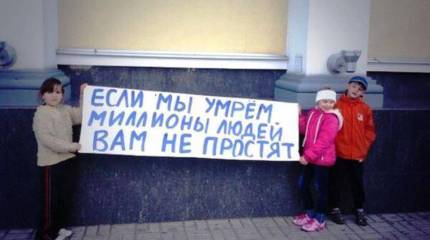 ЕСЛИ МЫ УМРЁМ
МИЛЛИОНЫ ЛЮДЕЙ
ВАМ НЕ ПРОСТЯТ